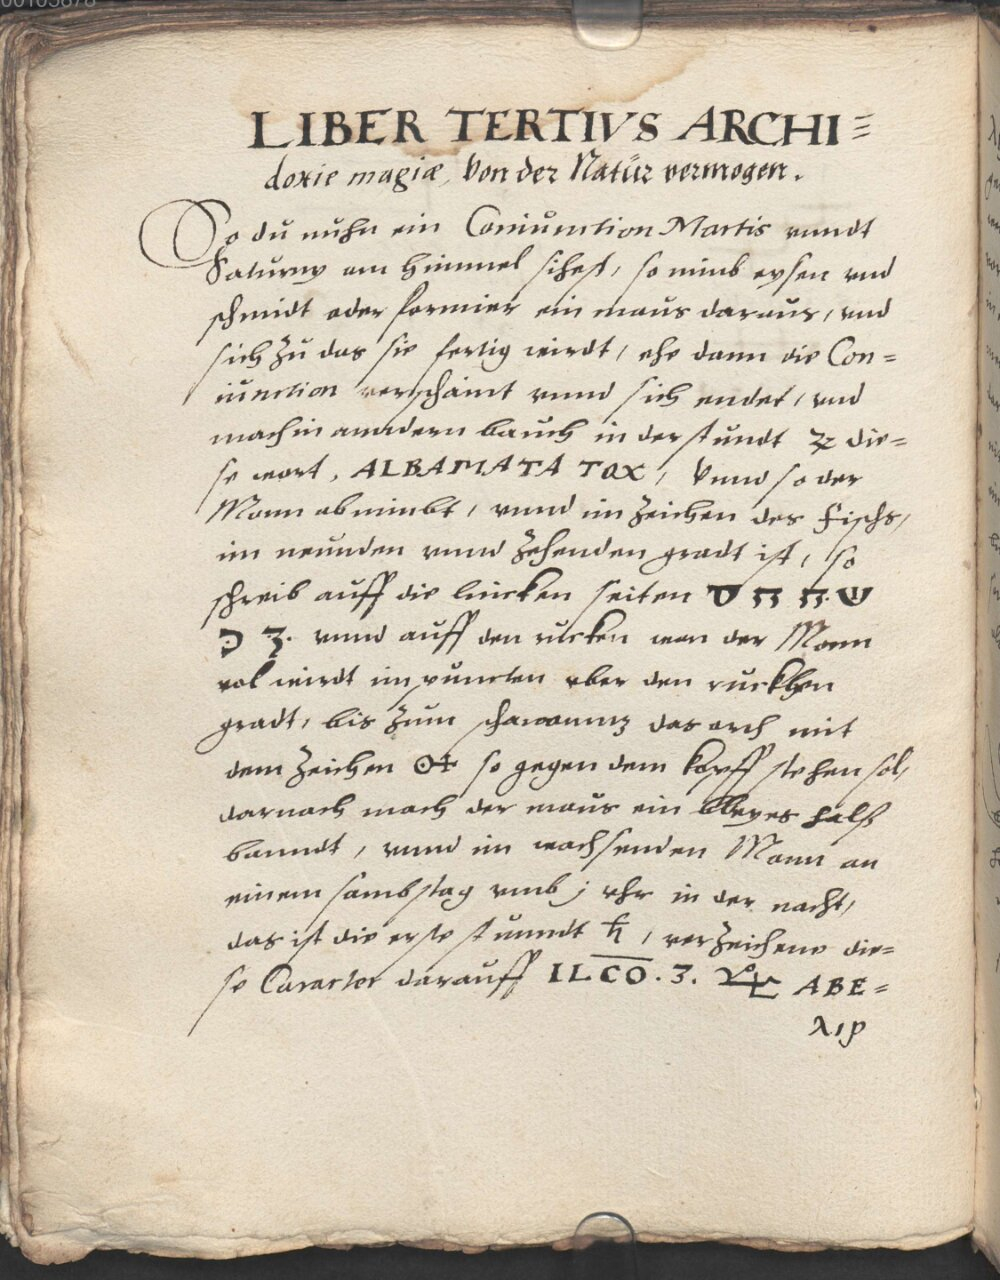 LIBER TERTIVS ARCHI=
doxie magiæ, Von der Natur vermogen.
So du nuhn ein Coniunction Martis vnndt
Saturny am himmel sihest, so nimb eysen vnd
schmidt oder formier ein maus daraus, vnd
sich zu das sie fertig wirdt, ehe dann die Con=
iunction verschaint vnnd sich endet, vnd
mach in anndern bauch in der stundt ♃ die=
se wort, ALBAMATA TOX, Vnnd so der
Monn abnimbt, vnnd im zeichen des Fischs,
im neunden vnnd zehenden gradt ist, so
schreib auff die lincken seiten
vnnd auff den rucken wan der Monn
vol wirdt im puncten vber den ruckhen
gradt, bis zum das auch mit
dem zeichen so gegen dem kopff stehen sol,
darnach mach der maus ein bleyes halß
banndt, vnnd im wachsenden Monn an
einem sambstag vmb j vhr in der nacht,
das ist die erste stunndt ♄, verzeichene die=
se Caracter darauff ILCO. 3. ABE=